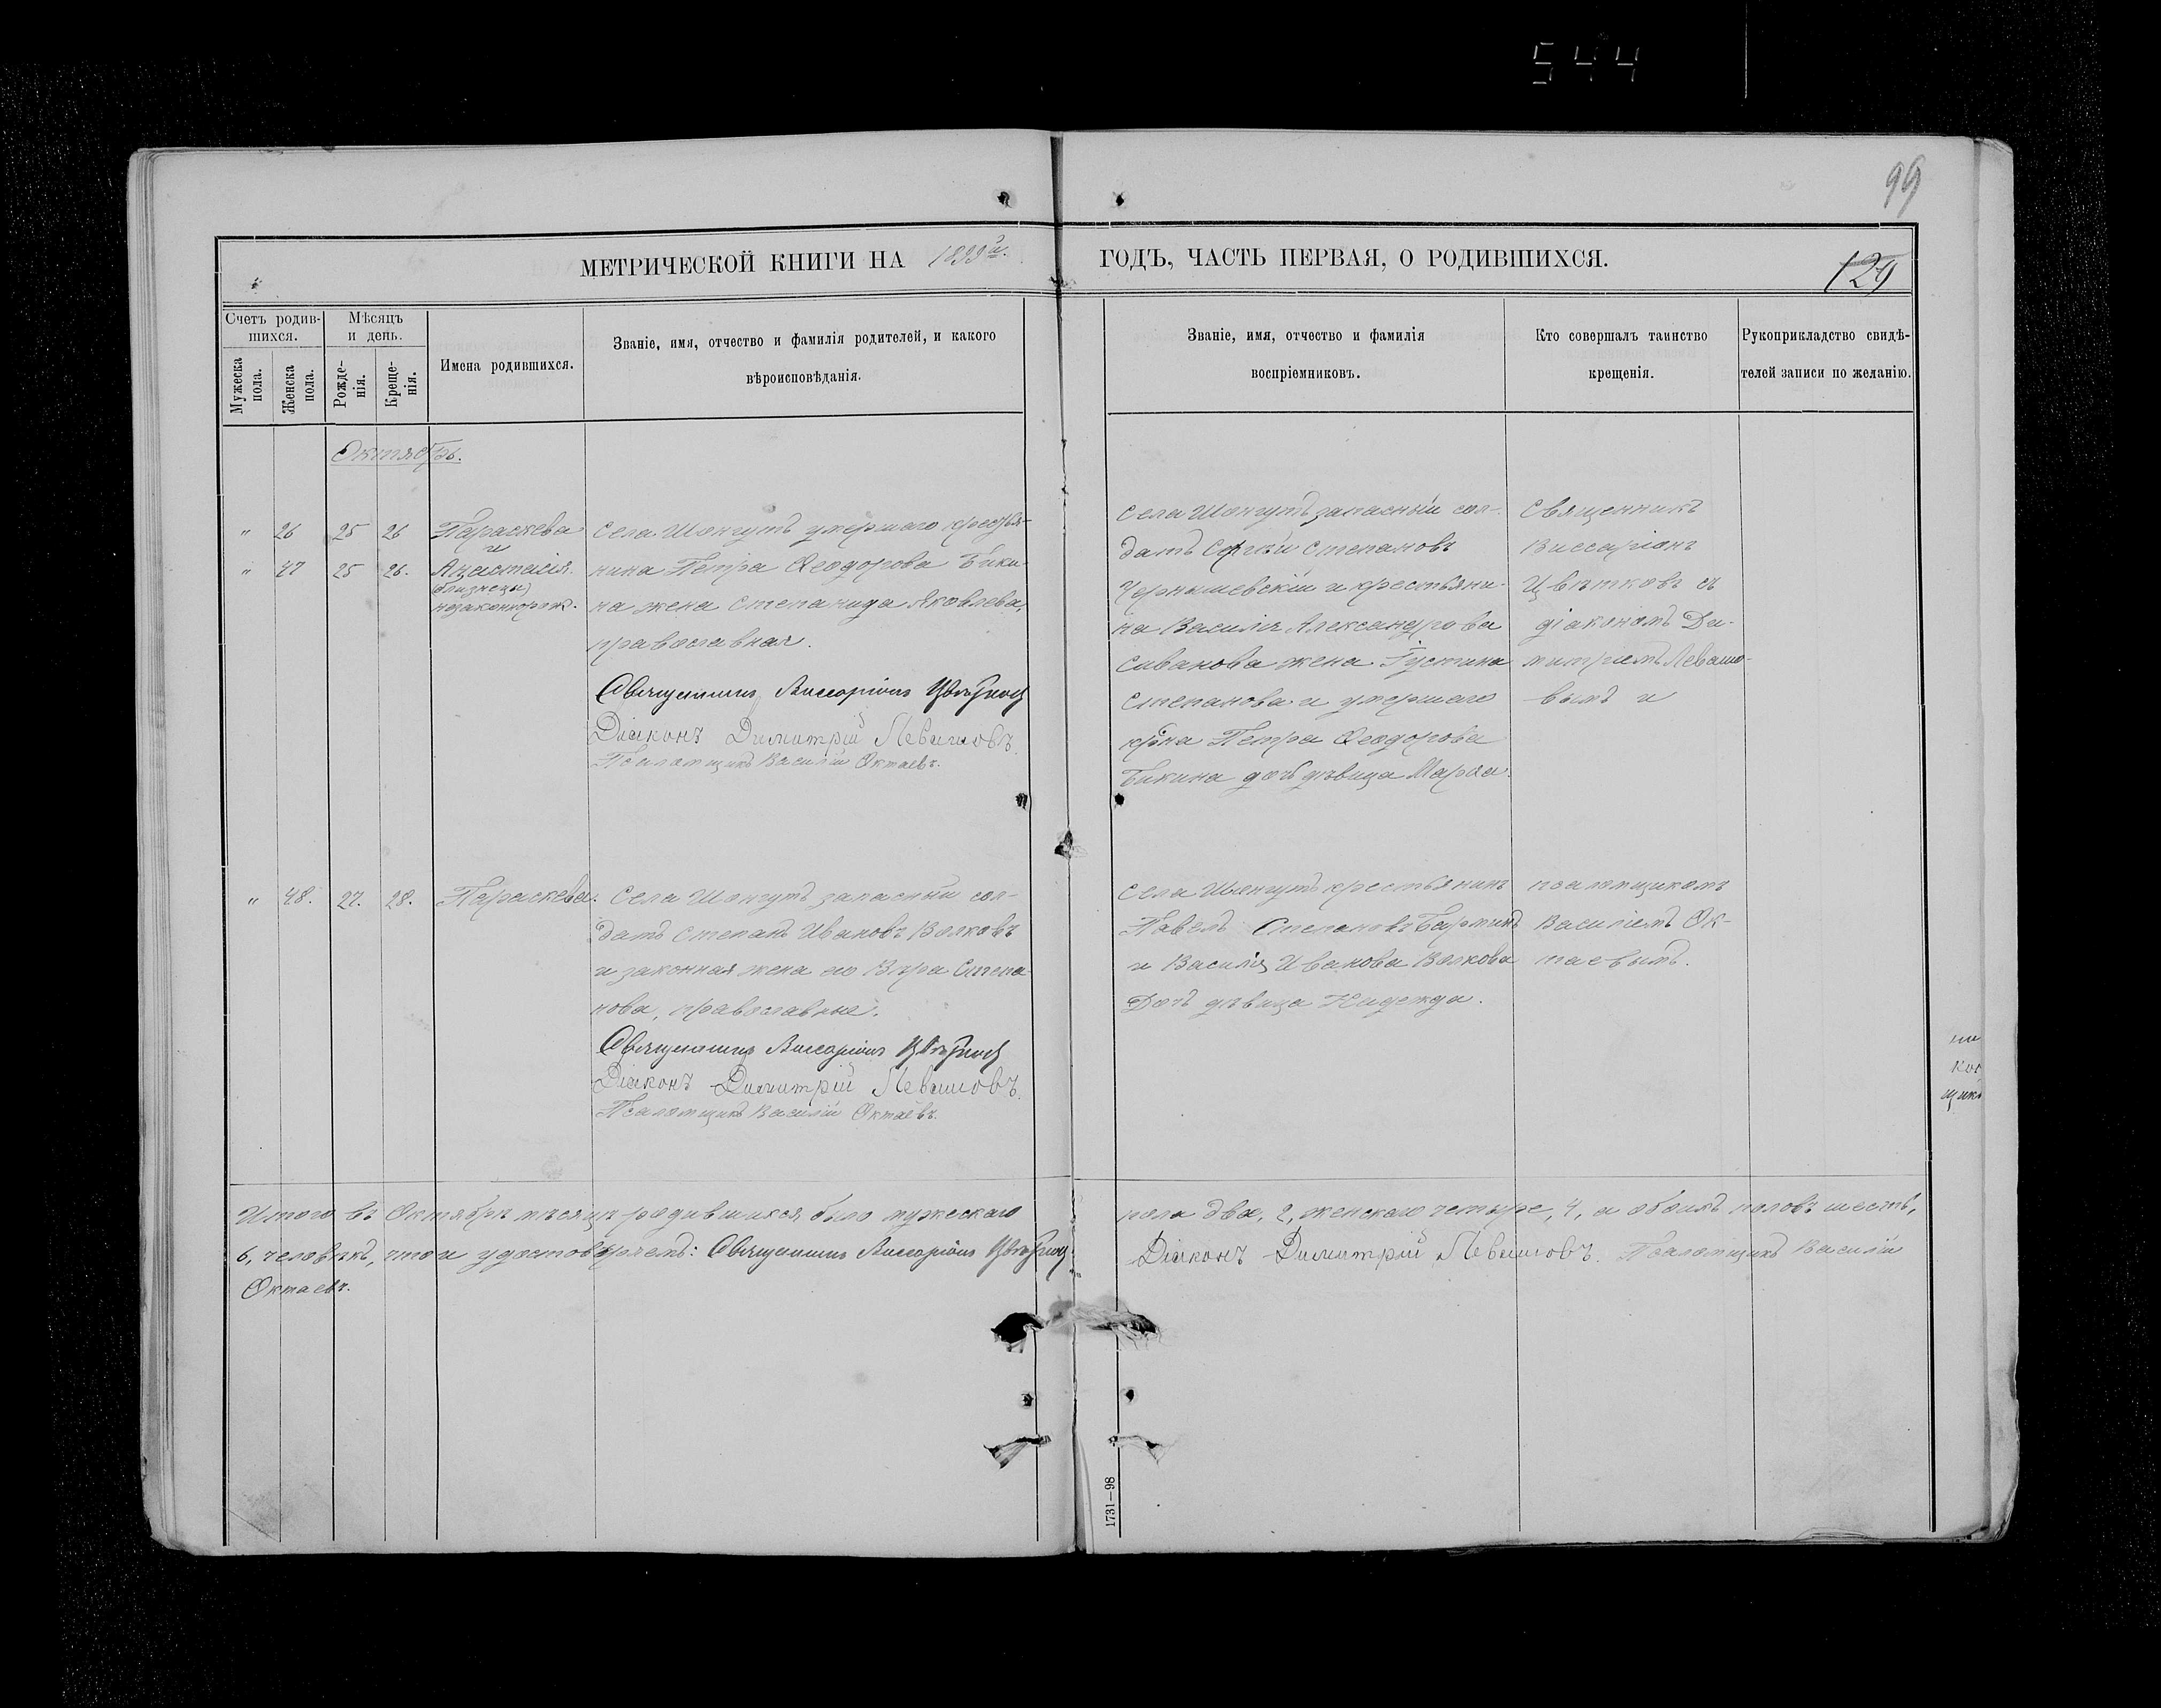 544
99
МЕТРИЧЕСКОЙ КНИГИ НА 1899й.
ГОДЪ, ЧАСТЬ ПЕРВАЯ, О РОДИВШИХСЯ.
129
Счетъ родив-
шихся.
Мужеска
пола.
Женска
пола.
Мѣсяцъ
и день.
Рожде-
нія.
Креще-
нія.
Имена родившихся.
Званіе, имя, отчество и фамилія родителей, и какого
вѣроисповѣданія.
Званіе, имя, отчество и фамилія
воспріемниковъ.
Кто совершалъ таинство
крещенія.
Рукоприкладство свидѣ-
телей записи по желанію.
Октябрь.
" 26 25 26
" 47 25 26.
Параскева
и
Анастасія.
(близнецы)
незаконнорож.
Села Шонгутъ умершаго крестья-
нина Петра Ѳеодорова Бики-
на жена Степанида Яковлева,
православная.
Священникъ Виссаріонъ Цвѣтковъ
Діаконъ Димитрій Левашовъ.
Псаломщикъ Василій Октаевъ.
Села Шонгутъ запасный сол-
датъ Сергѣй Степановъ
Чернышевскій и крестьяни-
на Василія Александрова
Сиванова жена Іустина
Степанова и умершаго
кр-на Петра Ѳеодорова
Бикина дочь дѣвица Марѳа.
Священникъ
Виссаріонъ
Цвѣтковъ съ
діакономъ Ди-
митріемъ Левашо-
вымъ и
" 48. 27. 28.
Параскева.
Села Шонгутъ запасный сол-
датъ Степанъ Ивановъ Волковъ
и законная жена его Вѣра Степа-
нова, православные.
Священникъ Виссаріонъ Цвѣтковъ
Діаконъ Димитрій Левашовъ.
Псаломщикъ Василій Октаевъ.
Села Шонгутъ крестьянинъ
Павелъ Степановъ
и Василія Иванова Волкова
Дочь дѣвица Надежда.
псаломщикомъ
Василіемъ Ок-
таевымъ.
кос
щикъ
Итого въ Октябрѣ мѣсяцѣ родившихся было мужескаго
пола два, 2, женскаго четыре, 4, а обоихъ половъ шесть,
6, человѣкъ, что и удостовѣряемъ: Священникъ Виссаріонъ Цвѣтковъ
Діаконъ Димитрій Левашовъ. Псаломщикъ Василій
Октаевъ.
1731—98